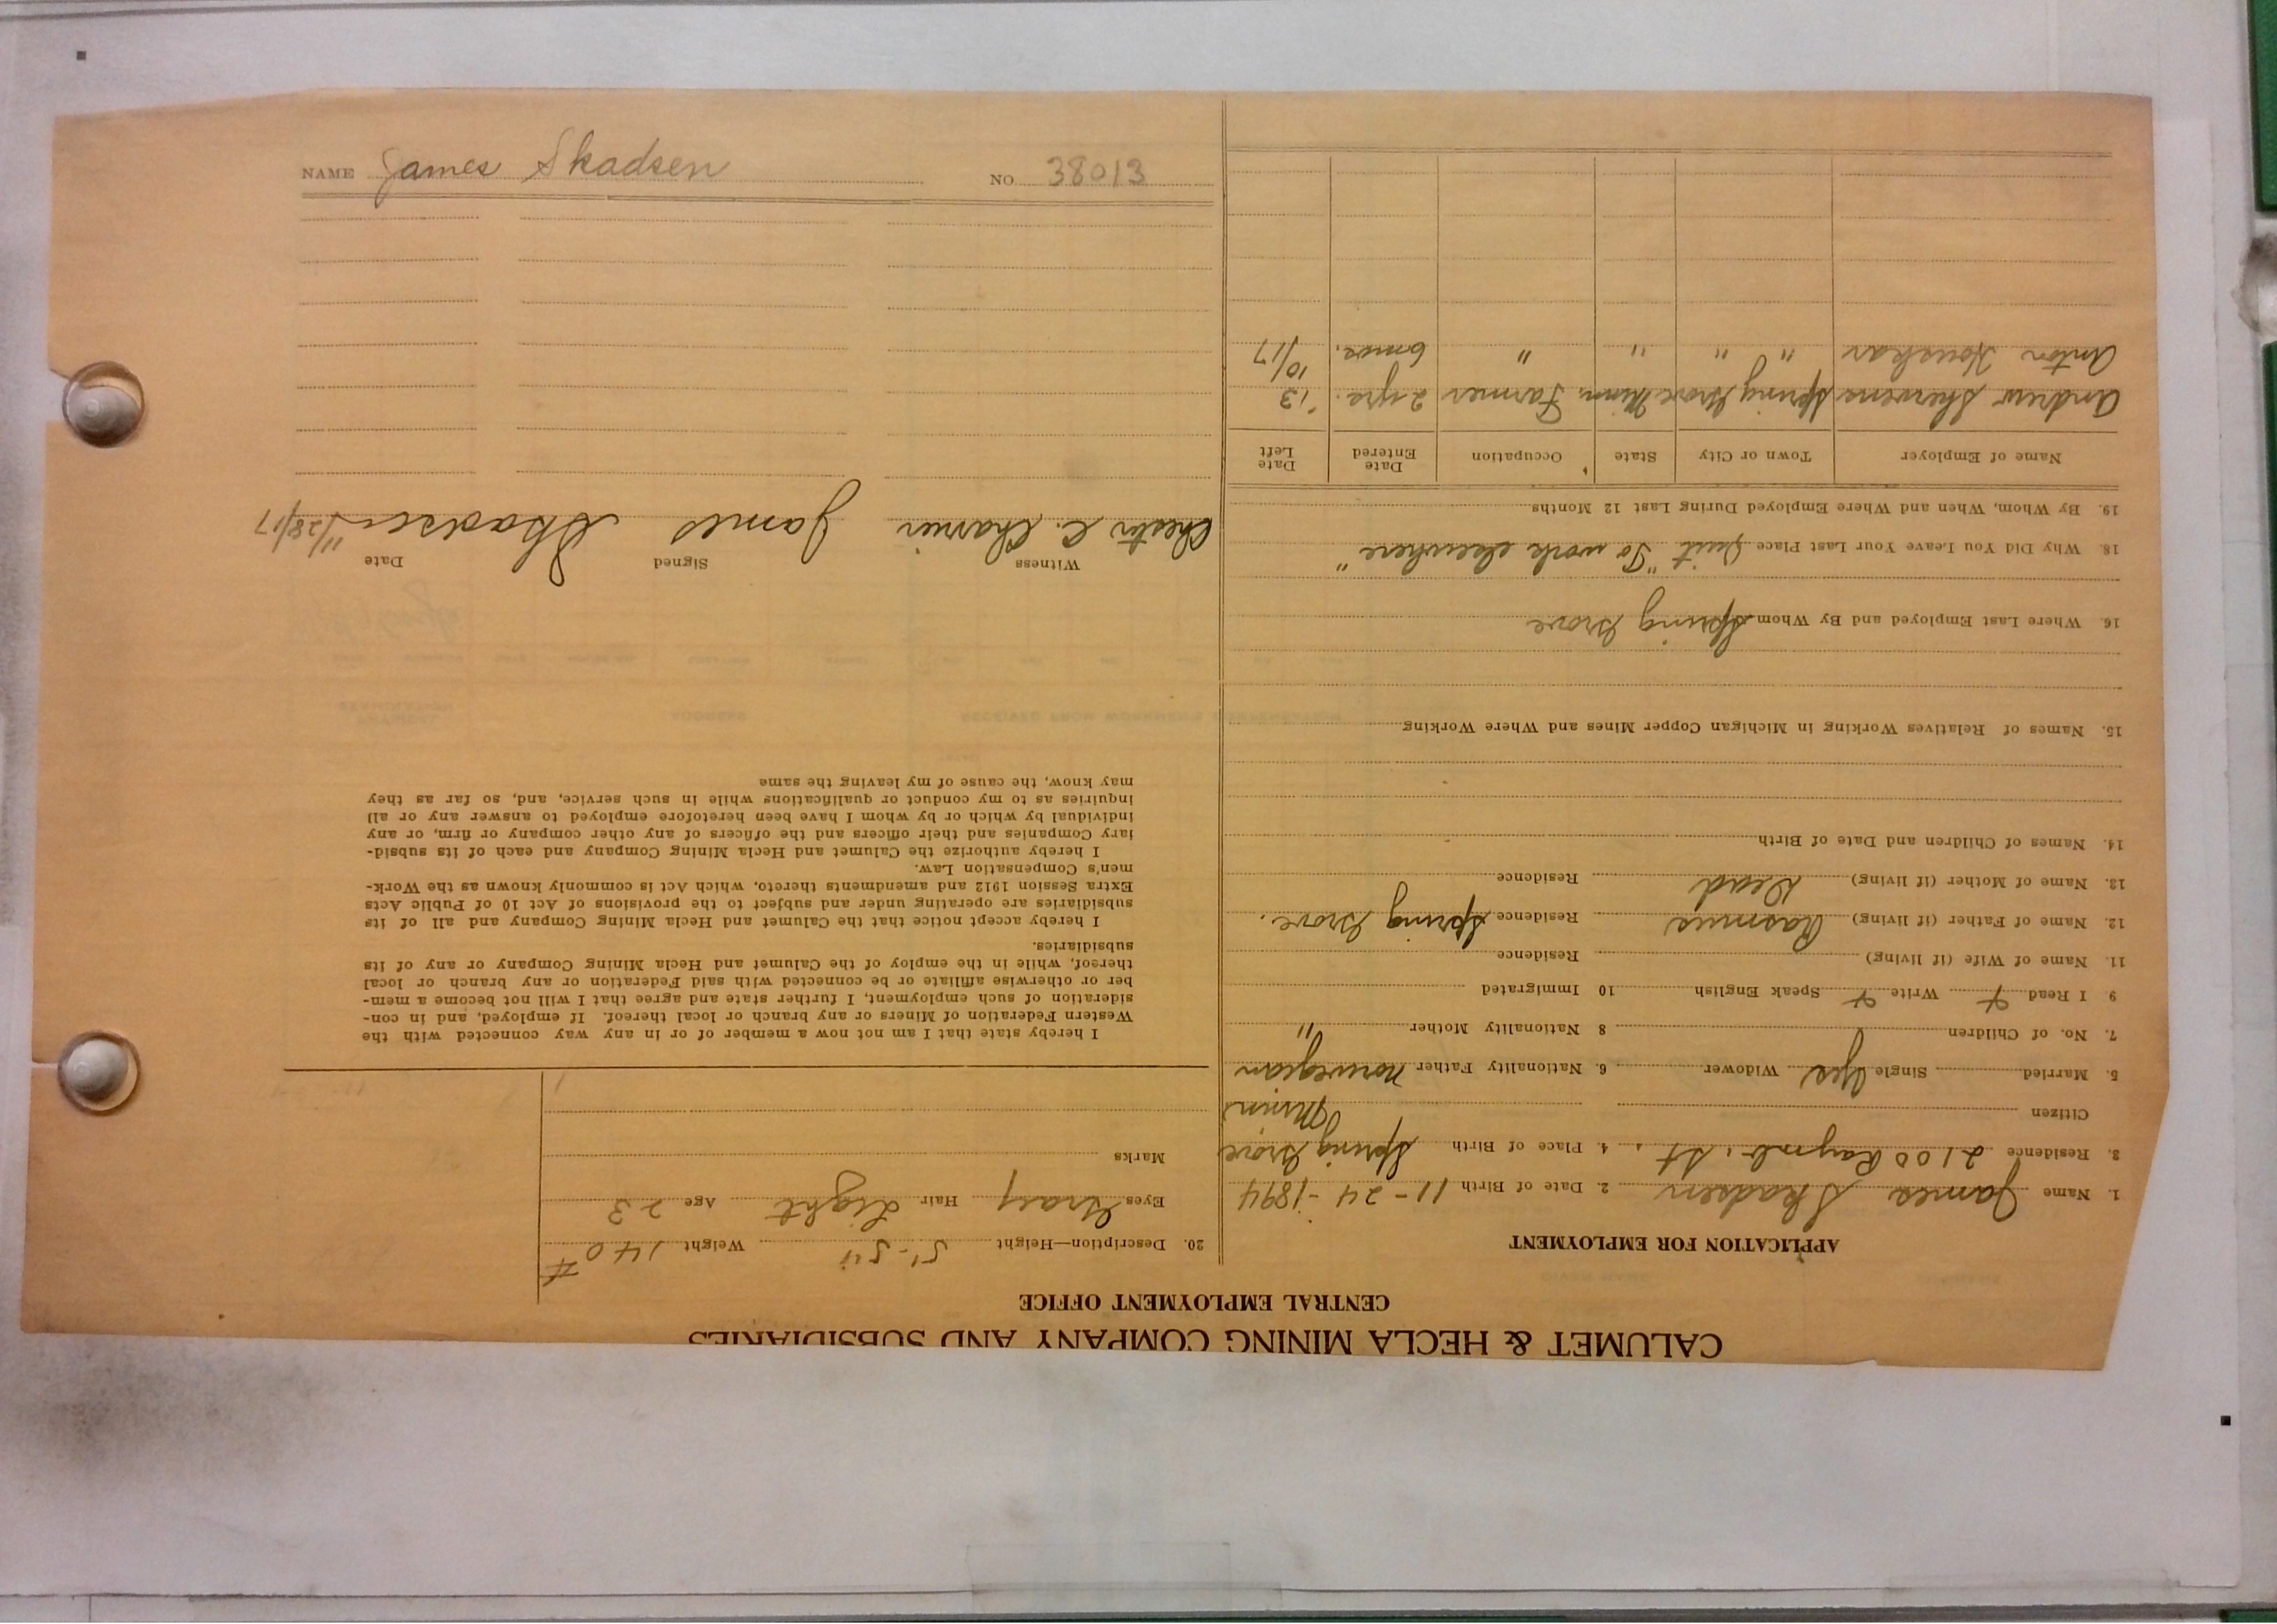 CALUMET & HECLA MINING COMPANY AND SUBSIDIARIES
CENTRAL EMPLOYMENT OFFICE
APPLICATION FOR EMPLOYMENT
1. Name James Skadsen 2. Date of Birth 11-24-1894
3. Residence 2100 Raymb. St. 4. Place of Birth Spring Grove
Citizen Minn
5. Married Single Yes Widower 6. Nationality Father Norwegian
7. No. of Children 8 Nationality Mother "
9 I Read Write Speak English 10 Immigrated
11. Name of Wife (if living) Residence
12. Name of Father (if living) Rasmus Residence Spring Grove.
13. Name of Mother (if living) Dead Residence
14. Names of Children and Date of Birth
15. Names of Relatives Working in Michigan Copper Mines and Where Working
16. Where Last Employed and By Whom Spring Grove
18. Why Did You Leave Your Last Place Quit "To work elsewhere"
19. By Whom, When and Where Employed During Last 12 Months
Name of Employer Town or City State Occupation Date Entered Date Left
Andrew Spring Grove Minn. Farmer 2 yrs. '13
Anton " " " " 6 mos. 10/17
20. Description—Height 5'-5" Weight 140 #
Eyes Gray Hair Light Age 23
Marks
I hereby state that I am not now a member of or in any way connected with the
Western Federation of Miners or any branch or local thereof. If employed, and in con-
sideration of such employment, I further state and agree that I will not become a mem-
ber or otherwise affiliate or be connected with said Federation or any branch or local
thereof, while in the employ of the Calumet and Hecla Mining Company or any of its
subsidiaries.
I hereby accept notice that the Calumet and Hecla Mining Company and all of its
subsidiaries are operating under and subject to the provisions of Act 10 of Public Acts
Extra Session 1912 and amendments thereto, which Act is commonly known as the Work-
men's Compensation Law.
I hereby authorize the Calumet and Hecla Mining Company and each of its subsid-
iary Companies and their officers and the officers of any other company or firm, or any
individual by which or by whom I have been heretofore employed to answer any or all
inquiries as to my conduct or qualifications while in such service, and, so far as they
may know, the cause of my leaving the same
Witness Signed Date
Chester C. James Skadsen 11/28/17
NAME James Skadsen NO. 38013